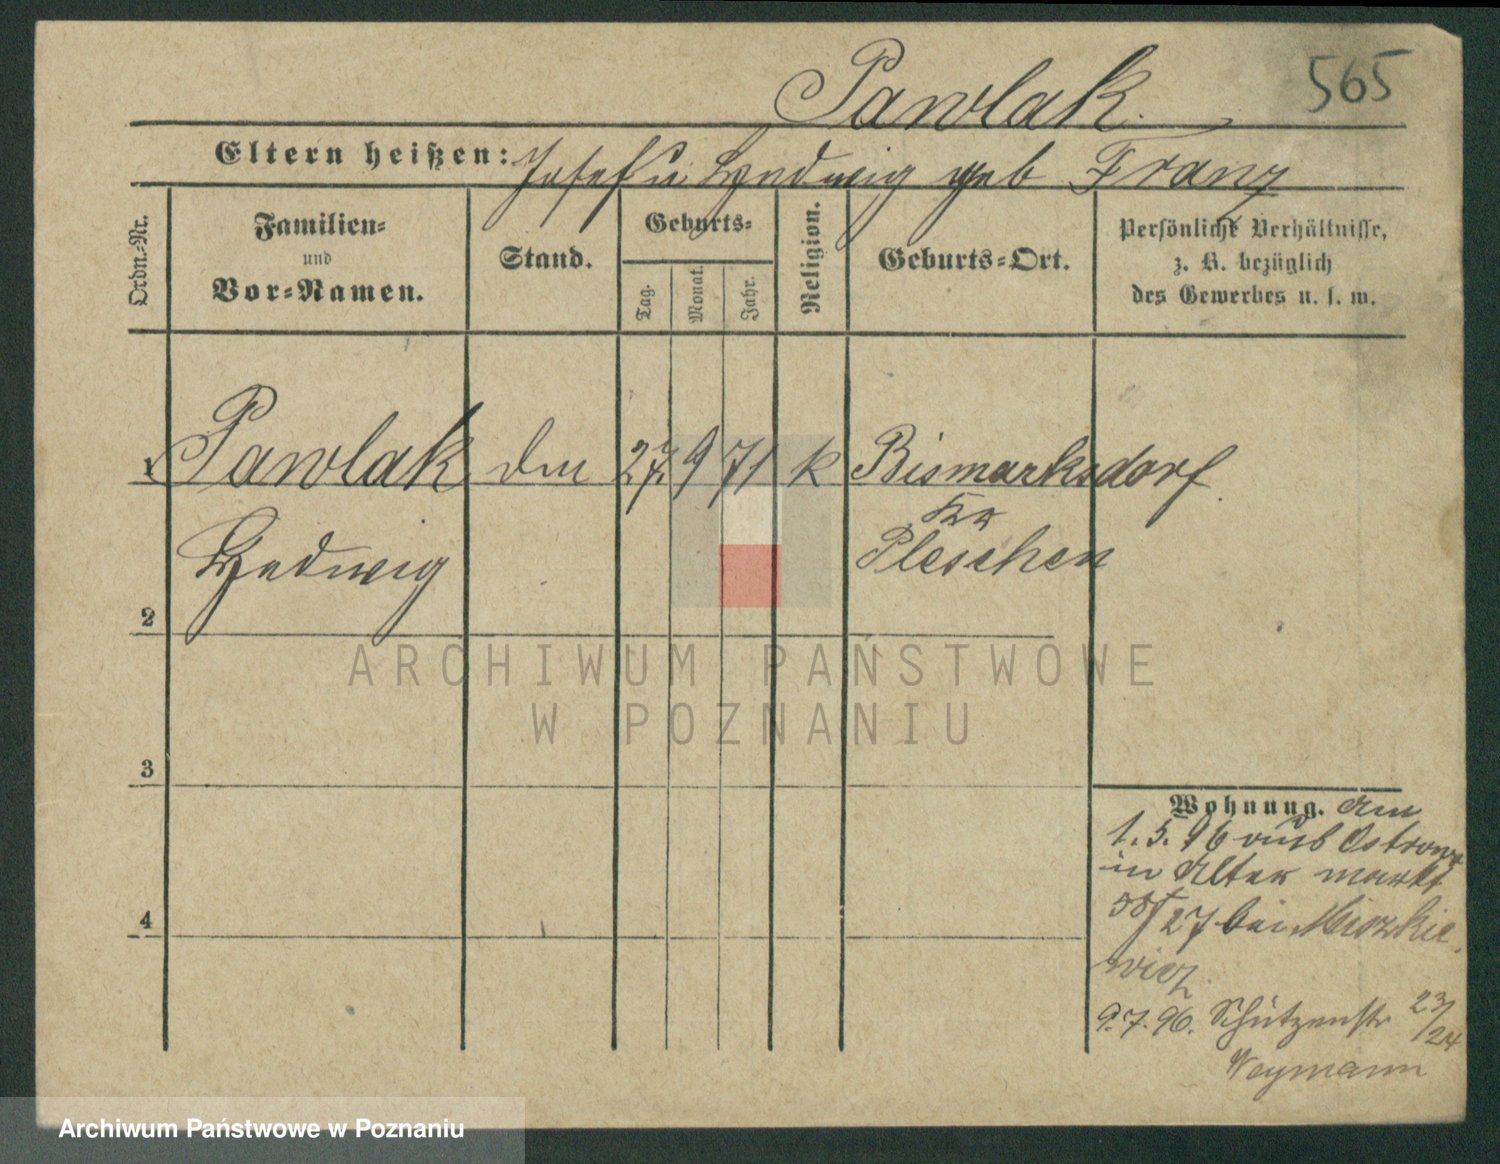 Pawlak.
565
Eltern heißen: Josef u Hedwig geb Franz
Ordn.-Nr.
Familien-
und
Vor-Namen.
Stand.
Geburts-
Tag.
Monat.
Jahr.
Religion.
Geburts-Ort.
Persönliche Verhältnisse,
z. B. bezüglich
des Gewerbes u. s. w.
1 Pawlak 27. 9 71 k Bismarksdorf
Kr
Hedwig Pleschen
2
3
4
Wohnung. Am
1. 5. 96 aus Ostrowo
in Alter markt
27 bei Mioszkie
wicz.
9.7.96. Schützenstr 23/24
Weymann
ARCHIWUM PAŃSTWOWE
W POZNANIU
Archiwum Państwowe w Poznaniu